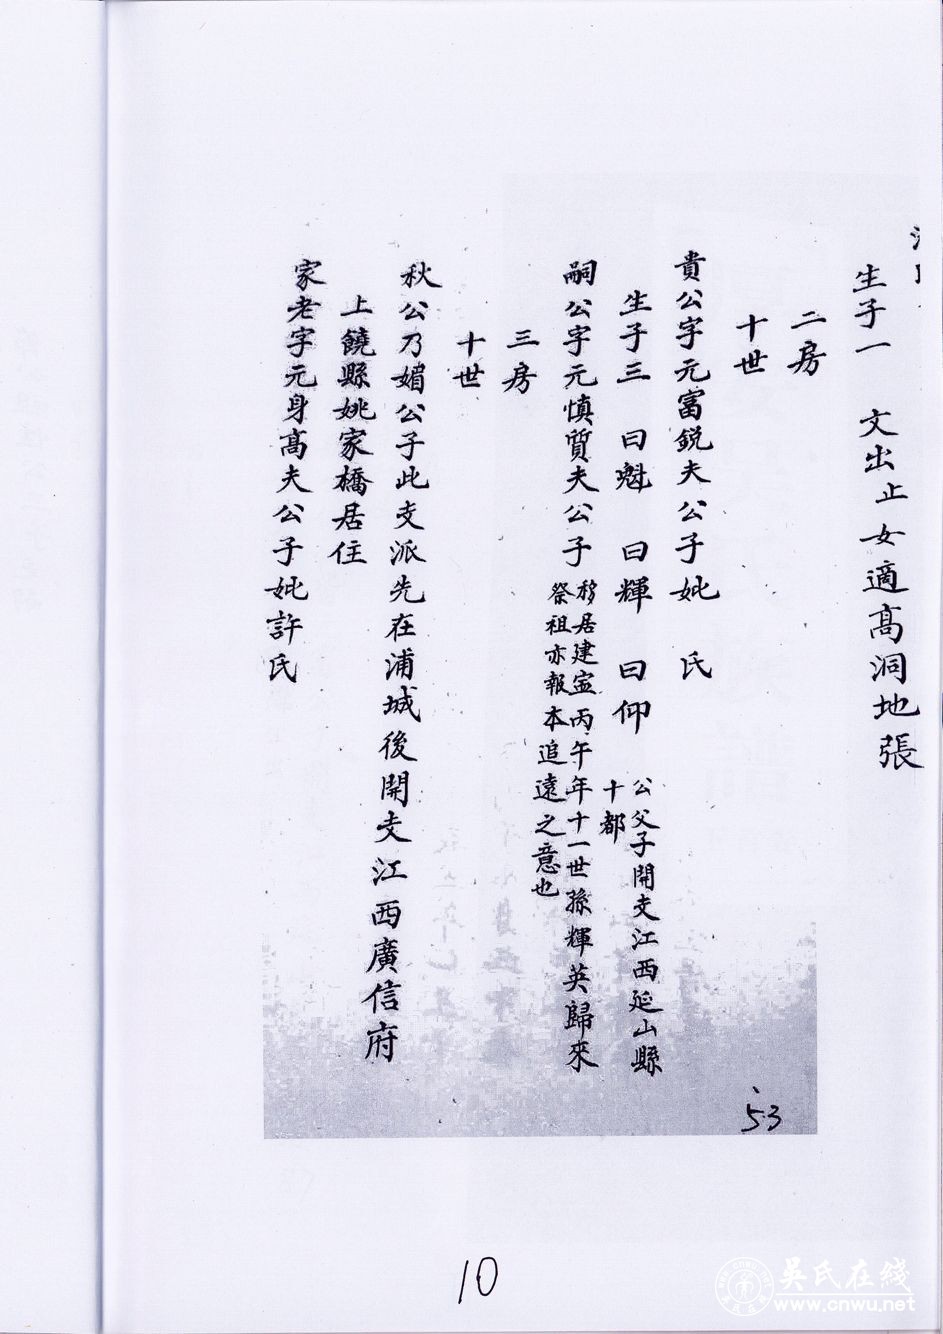 生子一 文出止女適高洞地張
二房
十世
貴公字元富銳夫公子妣 氏
生子三 曰魁 曰輝 曰仰 公父子開支江西延山縣
十都
嗣公字元慎質夫公子 移居建寍丙午年十一世孫輝英歸來
祭祖亦報本追遠之意也
三房
十世
秋公乃媚公子此支派先在浦城後開支江西廣信府
上饒縣姚家橋居住
家老字元身高夫公子妣許氏
53
10
吳氏在綫
www.cnwu.net